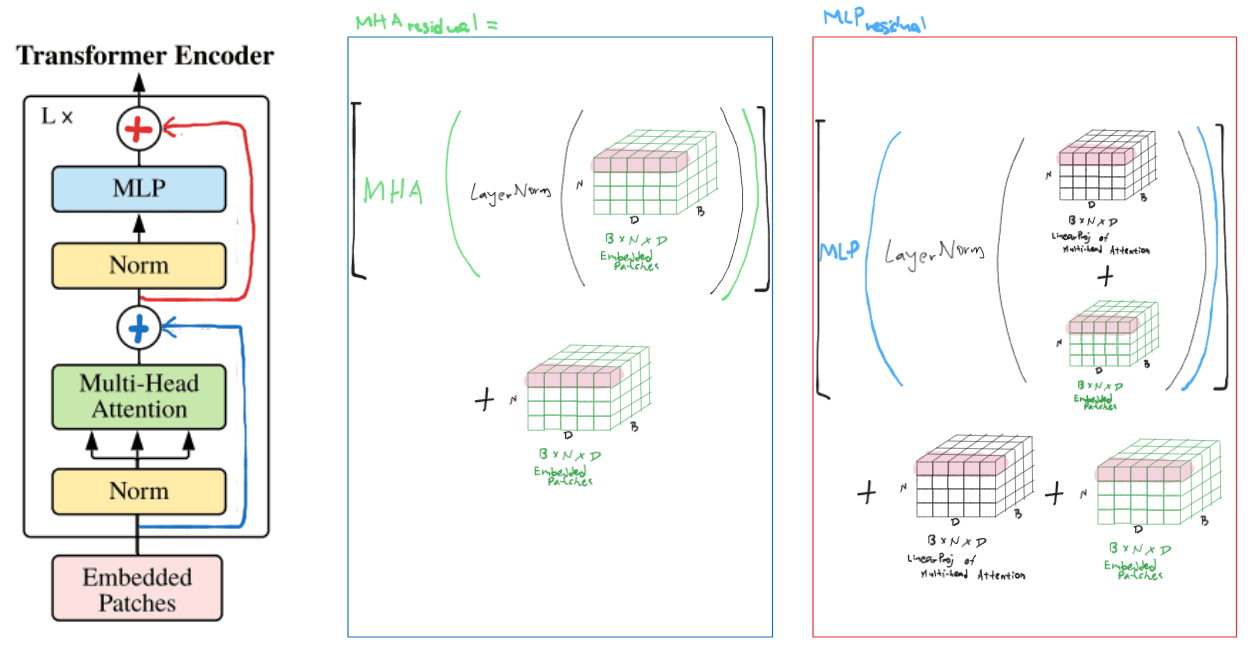 Transformer Encoder
L ×
+
MLP
Norm
+
Multi-Head
Attention
Norm
Embedded
Patches
MHA residual =
[ MHA ( LayerNorm (
N
D
B
B × N × D
Embedded
Patches
) ) ]
+
N
D
B
B × N × D
Embedded
Patches
MLP residual
[ MLP ( LayerNorm (
N
D
B
B × N × D
LinearProj of
Multi-head Attention
+
N
D
B
B × N × D
Embedded
Patches
) ) ]
+
N
D
B
B × N × D
LinearProj of
Multi-head Attention
+
N
D
B
B × N × D
Embedded
Patches